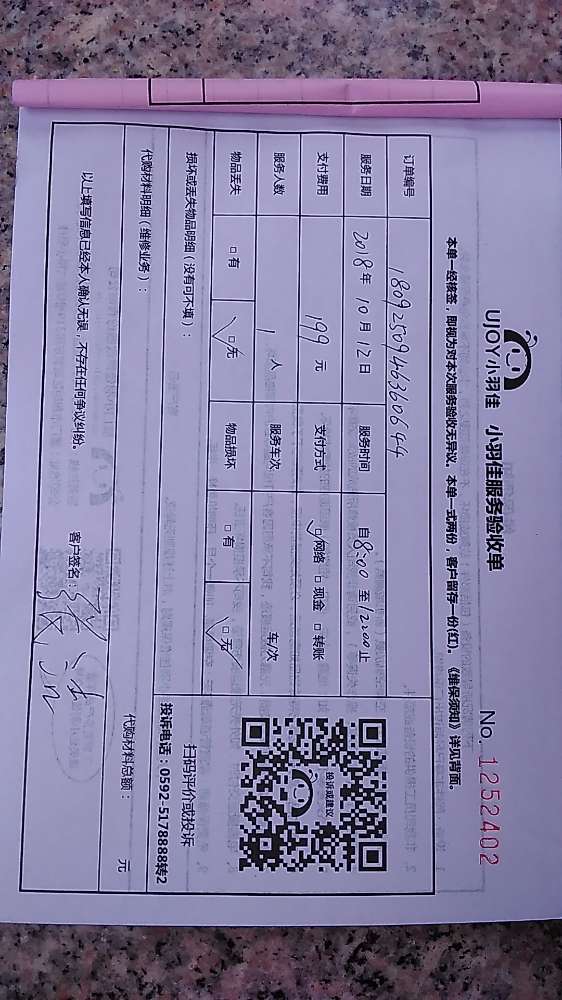 UJOY小羽佳 小羽佳服务验收单
No. 1252402
本单一经核签，即视为对本次服务验收无异议。本单一式两份，客户留存一份(红)。《维保须知》详见背面。
订单编号 1809250946360644
服务日期 2018年 10月 12日 服务时间 自8:00 至12:00止
支付费用 199 元 支付方式 ☑网络 □现金 □转账
服务人数 1 人 服务车次 车/次
物品丢失 □有 ☑无 物品损坏 □有 ☑无
投诉或建议
损坏或丢失物品明细（没有可不填）：
扫码评价或投诉
投诉电话：0592-5178888转2
代购材料明细（维修业务）：
代购材料总额： 元
以上填写信息已经本人确认无误，不存在任何争议纠纷。 客户签名：